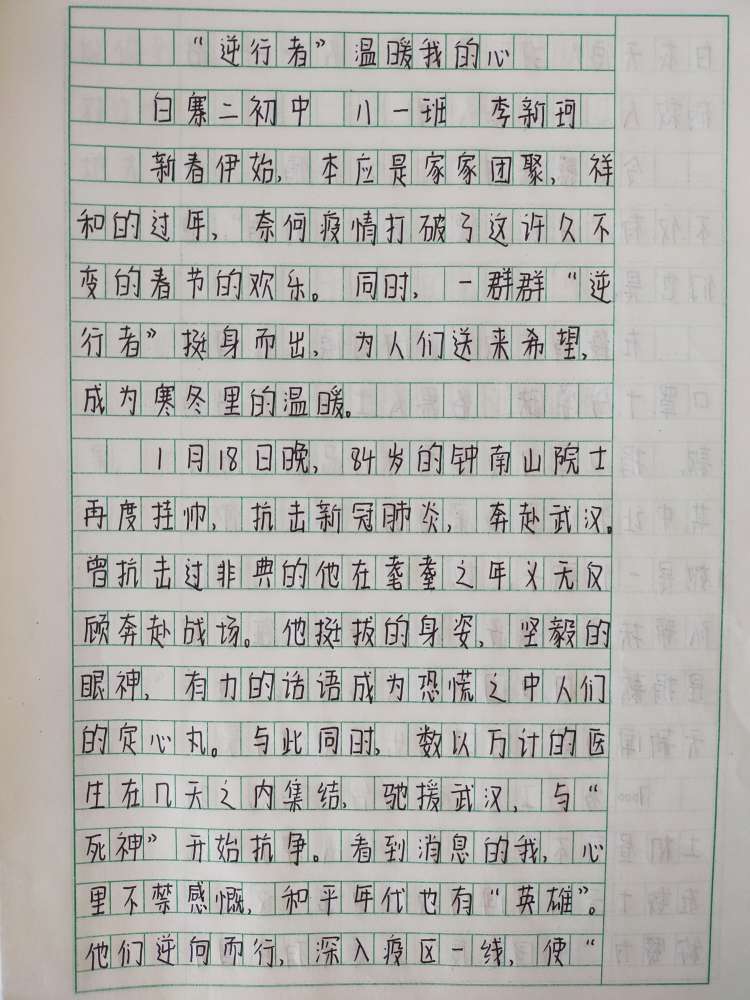 “逆行者”温暖我的心
白寨二初中 八一班 李新珂
新春伊始，本应是家家团聚，祥
和的过年，奈何疫情打破了这许久不
变的春节的欢乐。同时，一群群“逆
行者”挺身而出，为人们送来希望，
成为寒冬里的温暖。
1月18日晚，84岁的钟南山院士
再度挂帅，抗击新冠肺炎，奔赴武汉。
曾抗击过非典的他在耄耋之年义无反
顾奔赴战场。他挺拔的身姿，坚毅的
眼神，有力的话语成为恐慌之中人们
的定心丸。与此同时，数以万计的医
生在几天之内集结，驰援武汉，与“
死神”开始抗争。看到消息的我，心
里不禁感慨，和平年代也有“英雄”。
他们逆向而行，深入疫区一线，使“